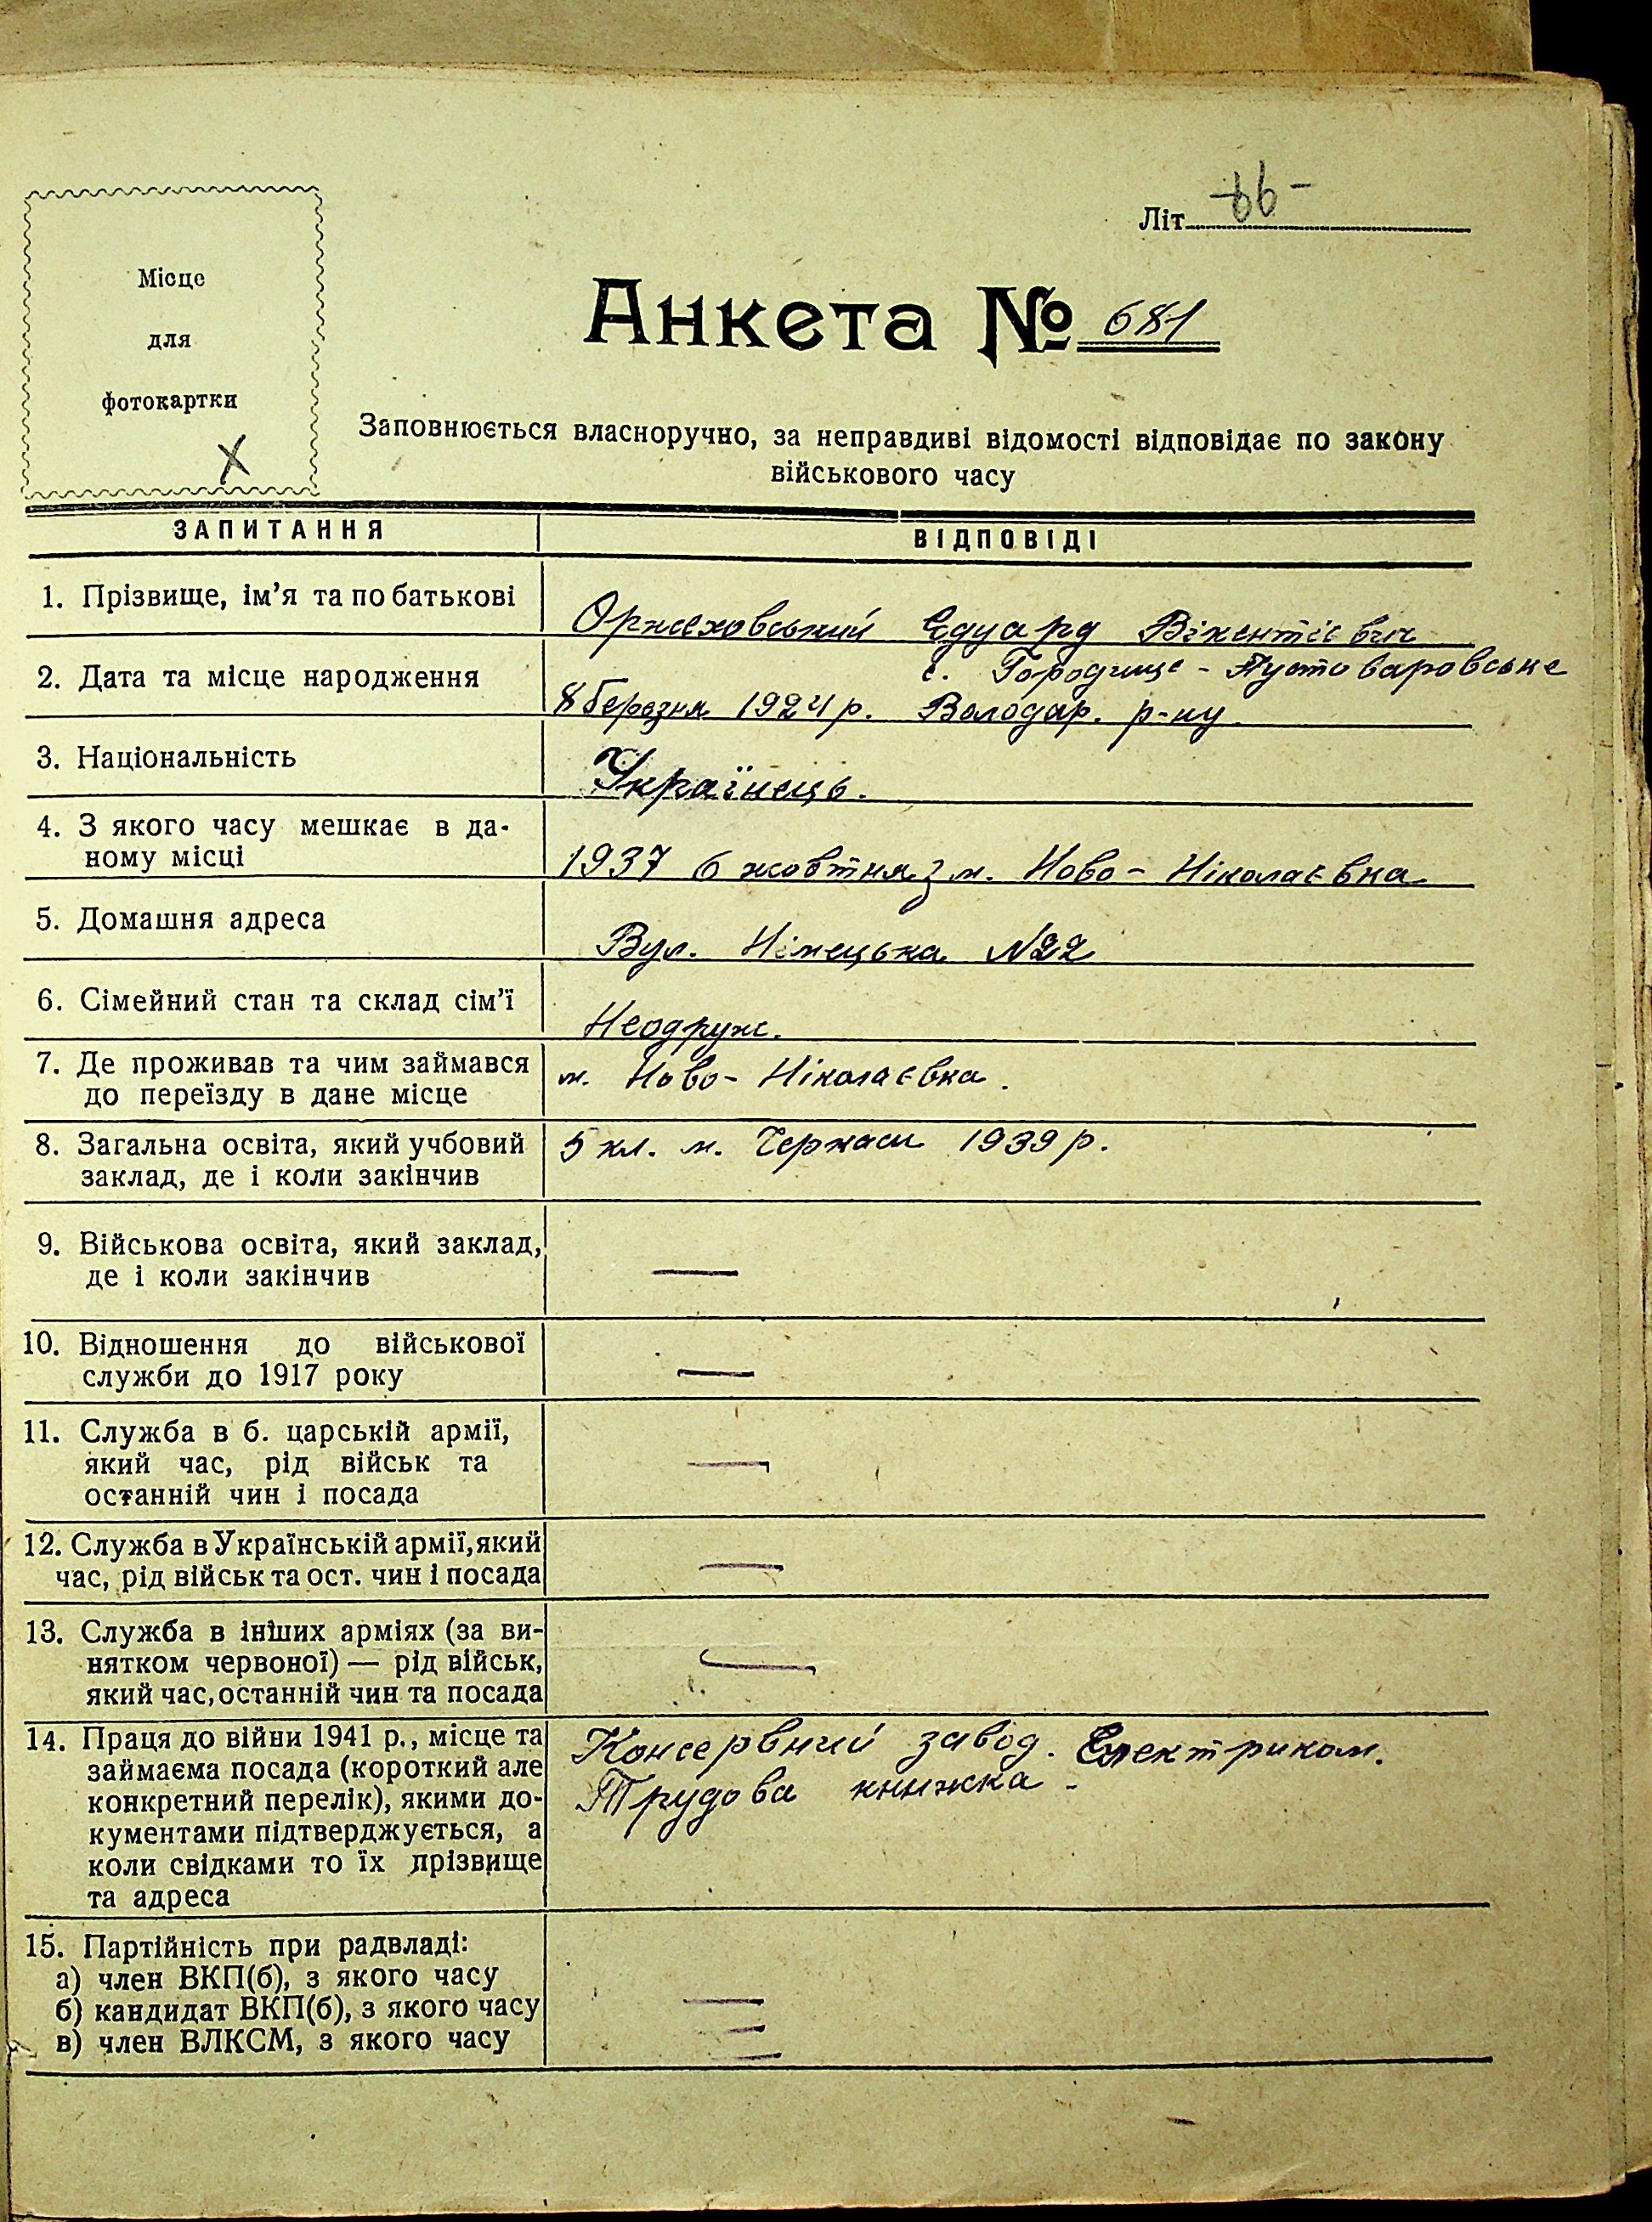 Літ. -66-
Місце
для
фотокартки
Анкета № 681
Заповнюється власноручно, за неправдиві відомості відповідає по закону
військового часу
ЗАПИТАННЯ ВІДПОВІДІ
1. Прізвище, ім'я та по батькові Оржеховський Едуард Вікентієвич
с. Городище - Пустоваровське
2. Дата та місце народження 8 березня 1924 р. Володар. р-ну
3. Національність Українець.
4. З якого часу мешкає в да-
ному місці 1937 6 жовтня з м. Ново - Ніколаєвка
5. Домашня адреса Вул. Німецька N22
6. Сімейний стан та склад сім'ї Неодруж.
7. Де проживав та чим займався м. Ново - Ніколаєвка.
до переїзду в дане місце
8. Загальна освіта, який учбовий 5 кл. м. Черкаси 1939 р.
заклад, де і коли закінчив
9. Військова освіта, який заклад,
де і коли закінчив —
10. Відношення до військової
служби до 1917 року —
11. Служба в б. царській армії,
який час, рід військ та —
останній чин і посада
12. Служба в Українській армії, який
час, рід військ та ост. чин і посада —
13. Служба в інших арміях (за ви-
нятком червоної) — рід військ, —
який час, останній чин та посада
14. Праця до війни 1941 р., місце та Консервний завод. Електриком.
займаєма посада (короткий але Трудова книжка -
конкретний перелік), якими до-
кументами підтверджується, а
коли свідками то їх прізвище
та адреса
15. Партійність при радвладі:
а) член ВКП(б), з якого часу —
б) кандидат ВКП(б), з якого часу —
в) член ВЛКСМ, з якого часу —